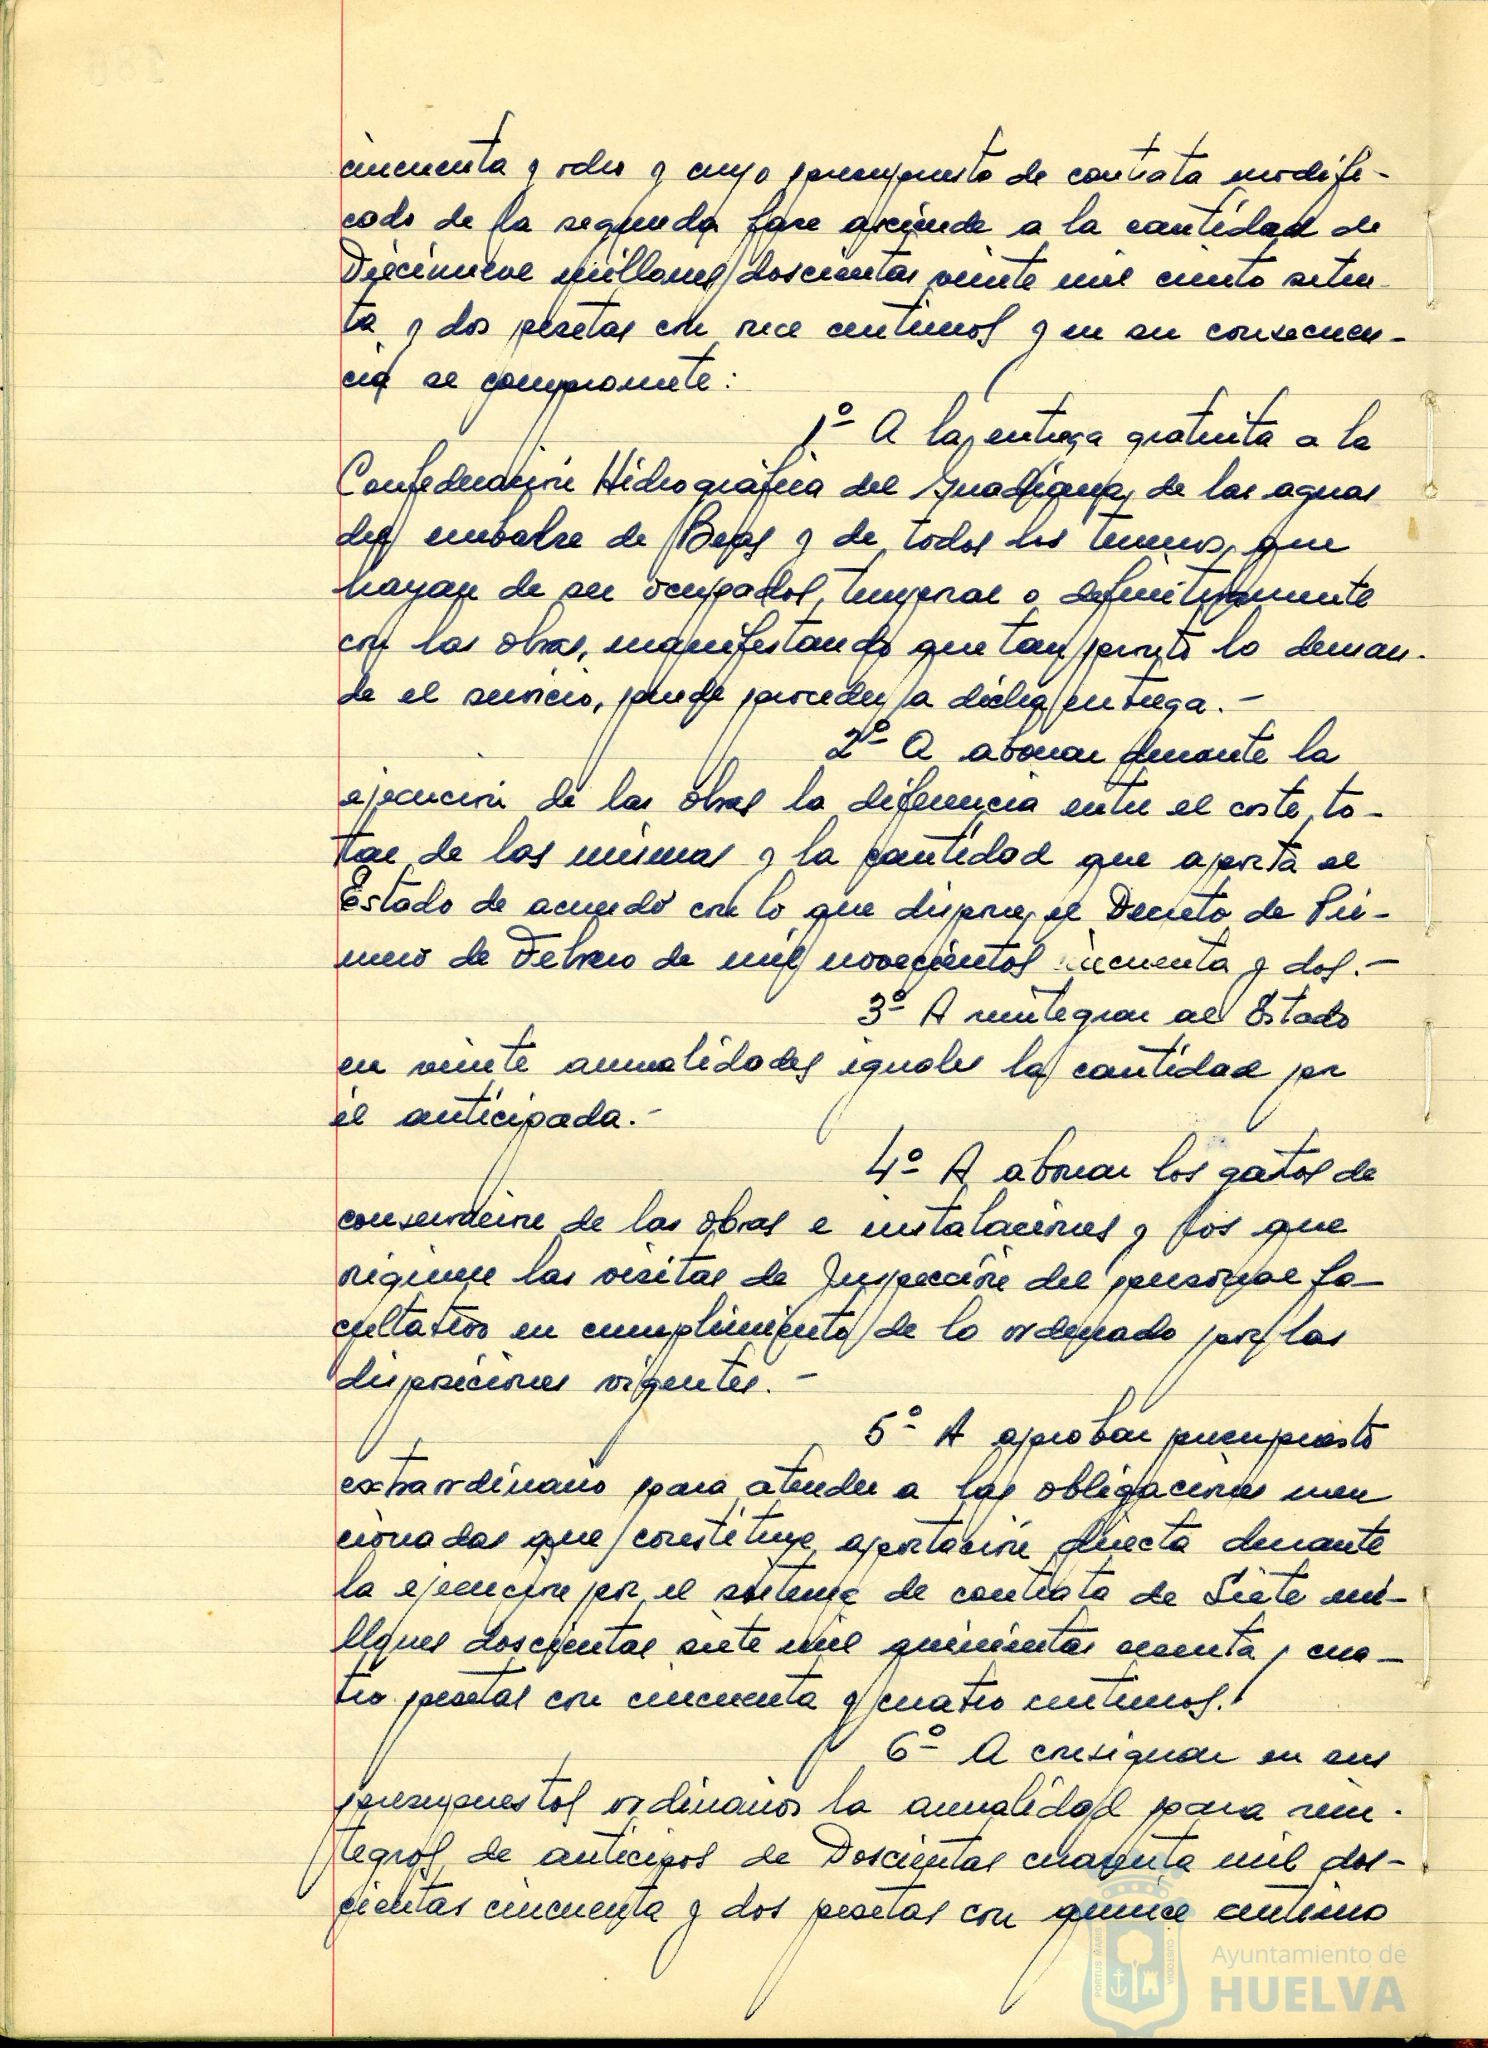 cincuenta y ocho y cuyo presupuesto de contrata modifi-
cado de la segunda fase asciende a la cantidad de
Diecinueve millones doscientas veinte mil ciento seten-
ta y dos pesetas con once centimos y en su consecuen-
cia se compromete:
1º A la entrega gratuita a la
Confederación Hidrográfica del Guadiana, de las aguas
del embalse de Beas y de todos los terrenos, que
hayan de ser ocupados, temporal o definitivamente
con las obras, manifestando que tan pronto lo deman-
de el servicio, puede proceder a dicha entrega.-
2º A abonar durante la
ejecución de las obras la diferencia entre el coste to-
tal de las mismas y la cantidad que aporta el
Estado de acuerdo con lo que dispone el Decreto de Pri-
mero de Febrero de mil novecientos cincuenta y dos.-
3º A reintegrar al Estado
en veinte anualidades iguales la cantidad por
él anticipada.-
4º A abonar los gastos de
conservación de las obras e instalaciones y los que
originen las visitas de Inspección del personal fa-
cultativo en cumplimiento de lo ordenado por las
disposiciones vigentes.-
5º A aprobar presupuesto
extraordinario para atender a las obligaciones men
cionadas que constituye aportación directa durante
la ejecución por el sistema de contrata de Siete mi-
llones doscientas siete mil quinientas sesenta y cua-
tro pesetas con cincuenta y cuatro centimos.
6º A consignar en sus
presupuestos ordinarios la anualidad para rein-
tegros de anticipos de Doscientas cuarenta mil dos-
cientas cincuenta y dos pesetas con quince centimo
PORTUS MARIS CUSTODIA
Ayuntamiento de
HUELVA